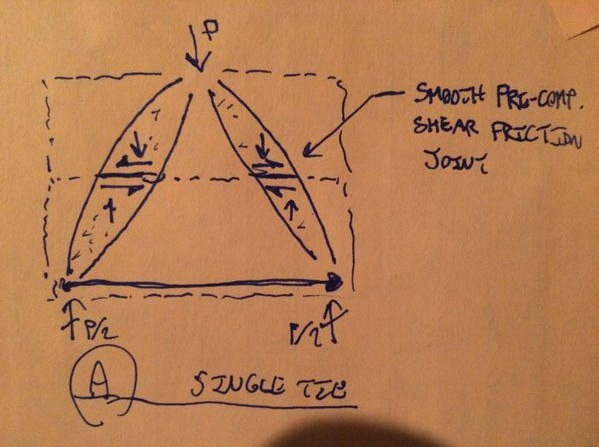 P
SMOOTH PRE-COMP.
SHEAR FRICTION
JOINT
P/2
P/2
A
SINGLE TIE